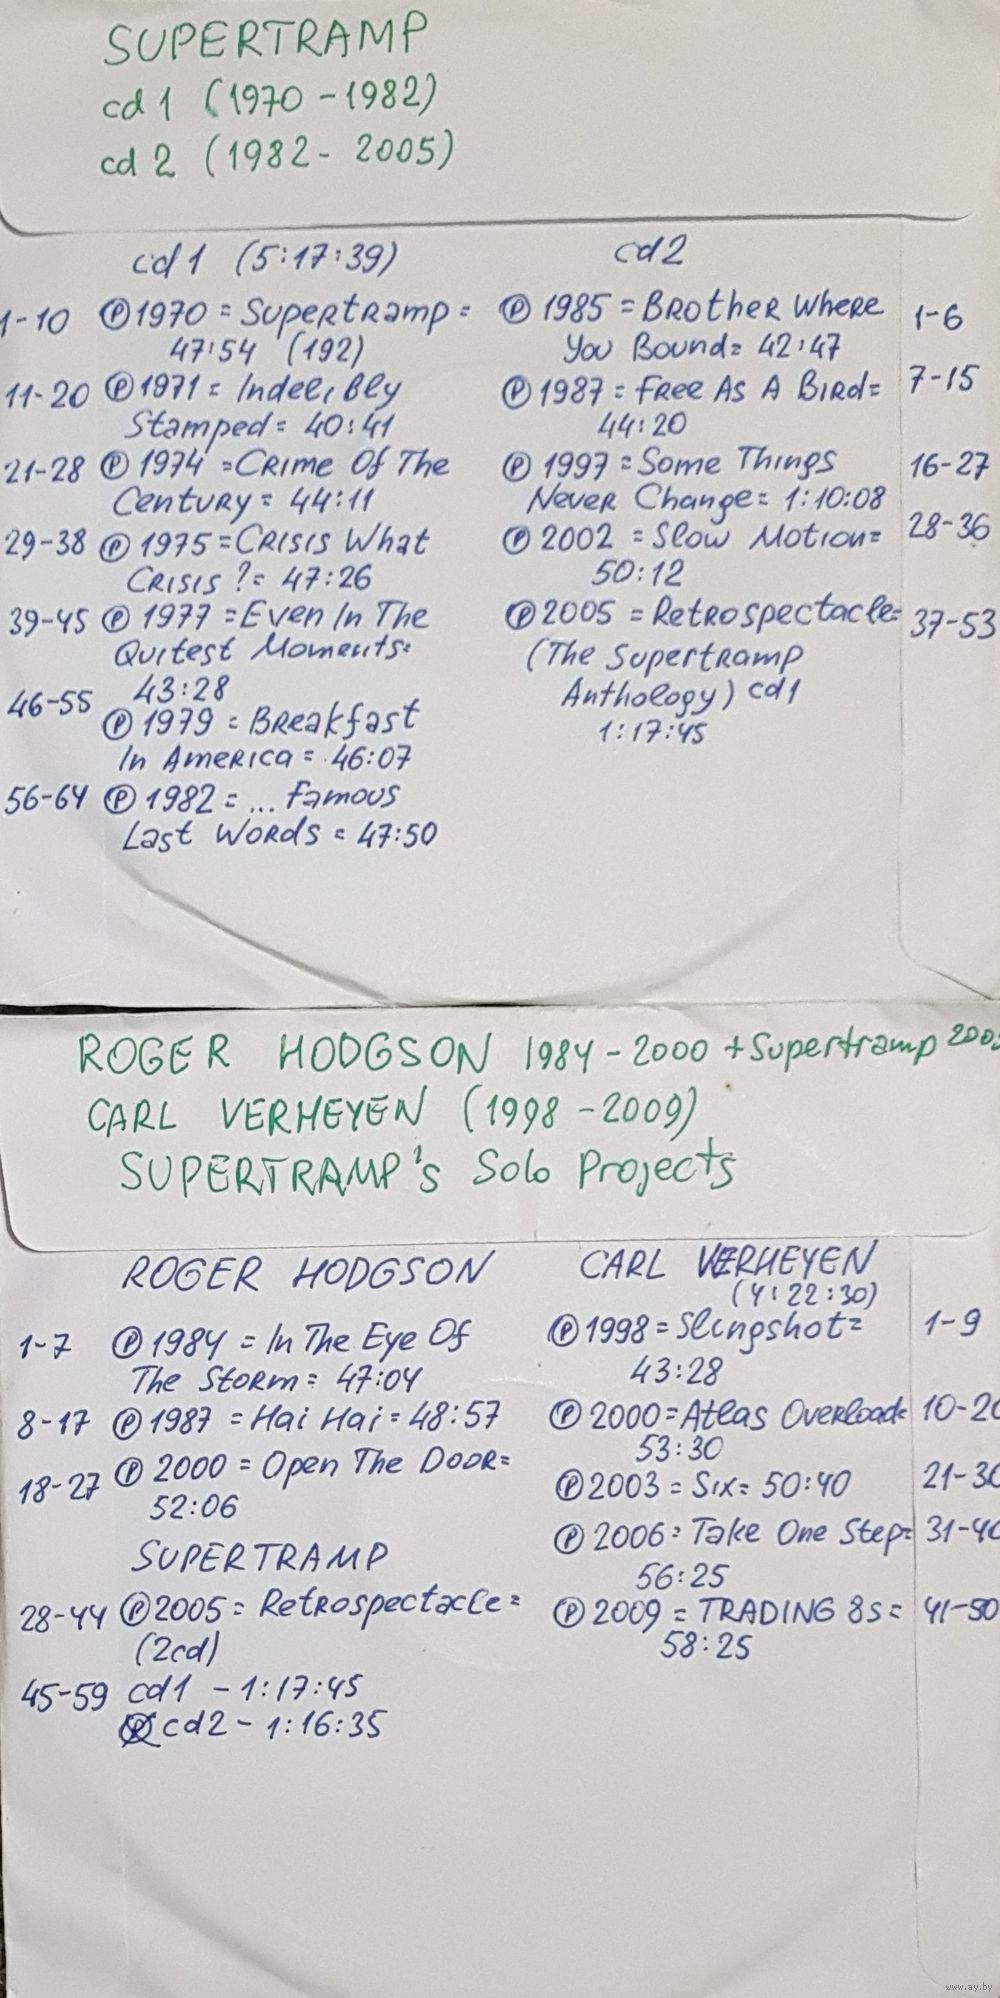 SUPERTRAMP
cd 1 (1970 - 1982)
cd 2 (1982 - 2005)
cd 1 (5:17:39)
1-10 Ⓟ 1970 = Supertramp =
47:54 (192)
11-20 Ⓟ 1971 = Indelibly
Stamped = 40:41
21-28 Ⓟ 1974 = Crime Of The
Century = 44:11
29-38 Ⓟ 1975 = Crisis What
Crisis ? = 47:26
39-45 Ⓟ 1977 = Even In The
Quitest Moments =
43:28
46-55 Ⓟ 1979 = Breakfast
In America = 46:07
56-64 Ⓟ 1982 = ... Famous
Last Words = 47:50
cd 2
Ⓟ 1985 = Brother Where 1-6
You Bound = 42:47
Ⓟ 1987 = Free As A Bird = 7-15
44:20
Ⓟ 1997 = Some Things 16-27
Never Change = 1:10:08
Ⓟ 2002 = Slow Motion = 28-36
50:12
Ⓟ 2005 = Retrospectacle = 37-53
(The Supertramp
Anthology) cd1
1:17:45
ROGER HODGSON 1984 - 2000 + Supertramp
CARL VERHEYEN (1998 - 2009)
SUPERTRAMP's Solo Projects
ROGER HODGSON
1-7 Ⓟ 1984 = In The Eye Of
The Storm = 47:04
8-17 Ⓟ 1987 = Hai Hai = 48:57
18-27 Ⓟ 2000 = Open The Door =
52:06
SUPERTRAMP
28-44 Ⓟ 2005 = Retrospectacle =
(2cd)
45-59 cd1 - 1:17:45
cd2 - 1:16:35
CARL VERHEYEN
(4:22:30)
Ⓟ 1998 = Slingshot = 1-9
43:28
Ⓟ 2000 = Atlas Overload = 10-20
53:30
Ⓟ 2003 = Six = 50:40 21-30
Ⓟ 2006 = Take One Step = 31-40
56:25
Ⓟ 2009 = TRADING 8s = 41-50
58:25
www.ay.by